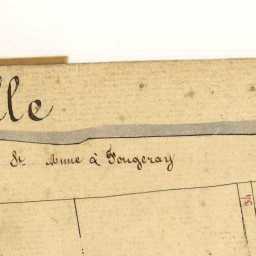 lle
St. Anne à Fougeray